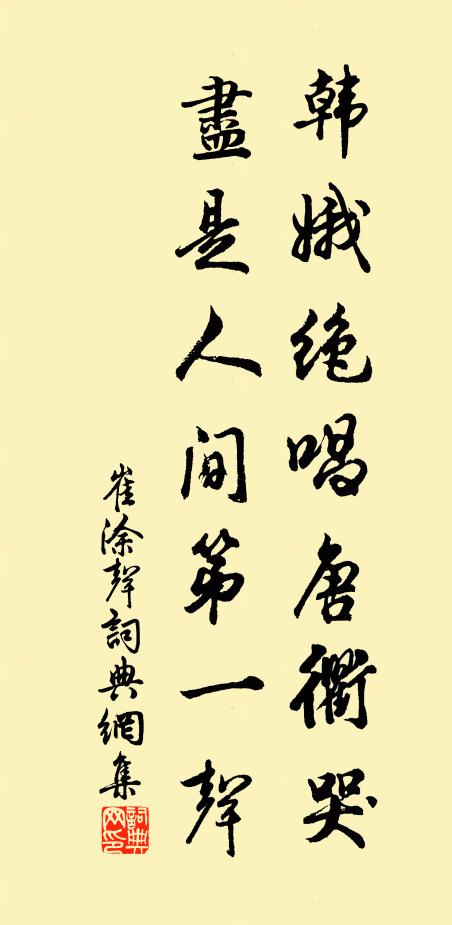 韩娥绝唱唐衢哭
盡是人间第一聲
崔涂聲詞典網集
詞典网印